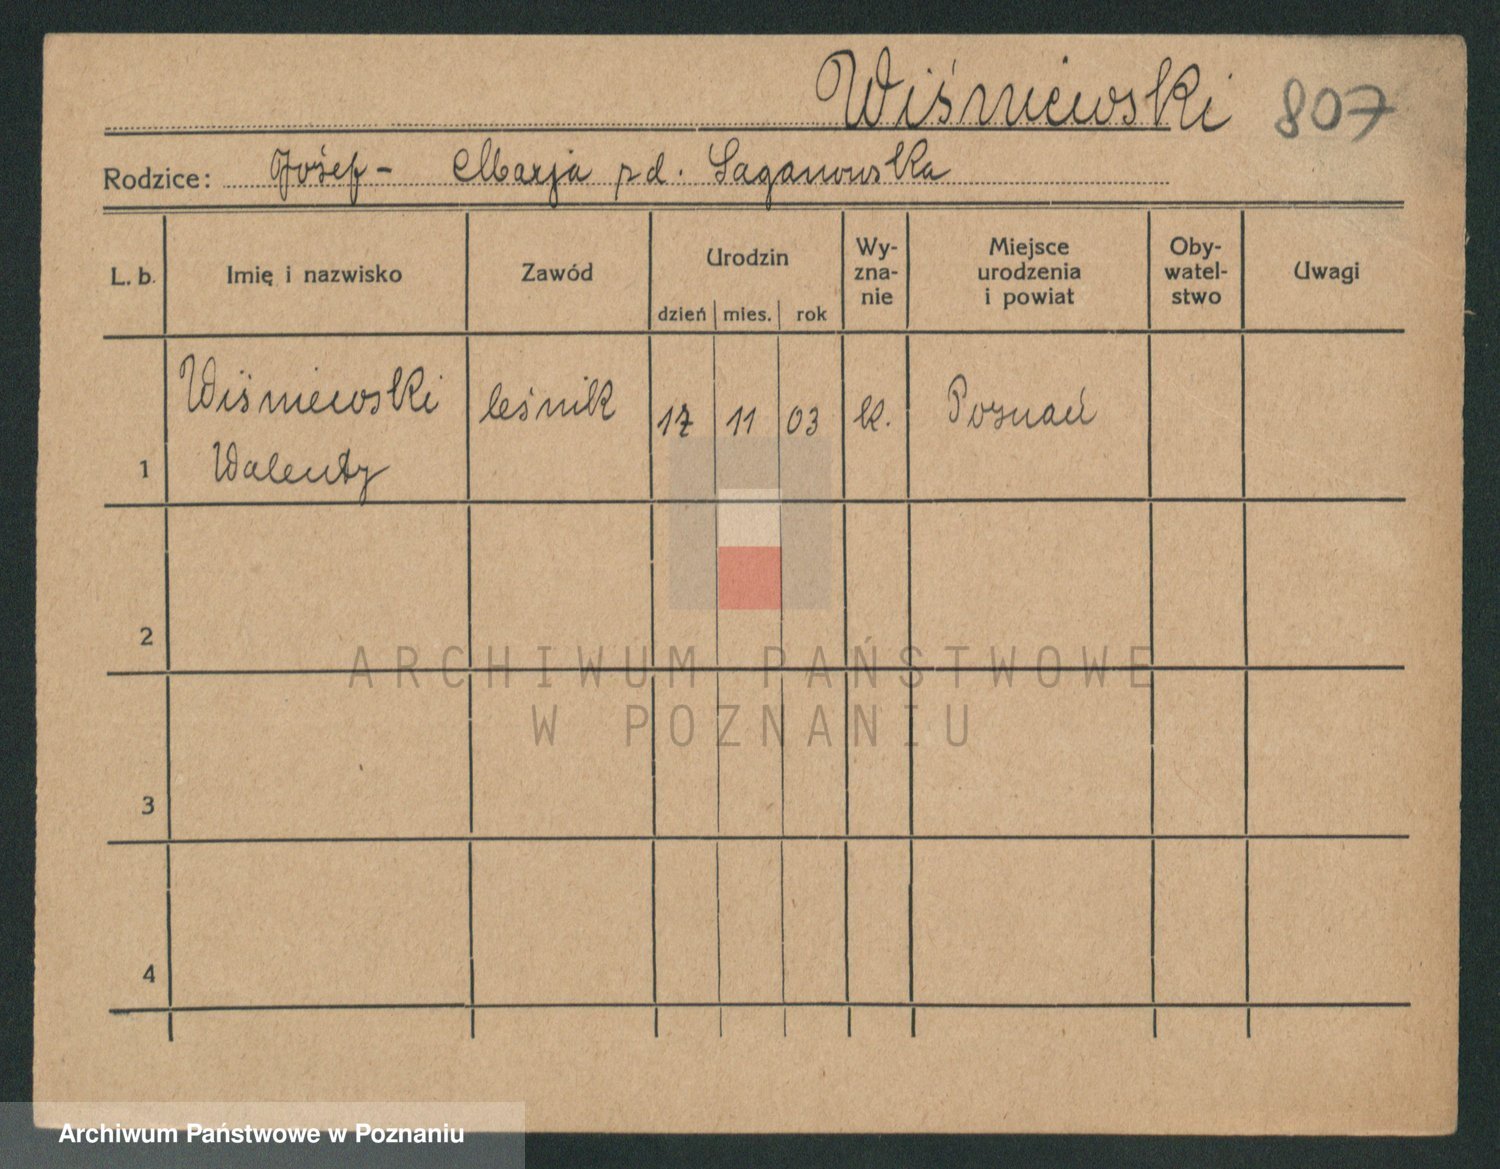 Wiśniewski 807
Rodzice: Józef - Marja zd. Saganowska
L. b. Imię i nazwisko Zawód Urodzin Wy-zna-nie Miejsce urodzenia i powiat Oby-watel-stwo Uwagi
dzień mies. rok
Wiśniewski leśnik 17 11 03 k. Poznań
1 Walenty
2
ARCHIWUM PAŃSTWOWE
W POZNANIU
3
4
Archiwum Państwowe w Poznaniu